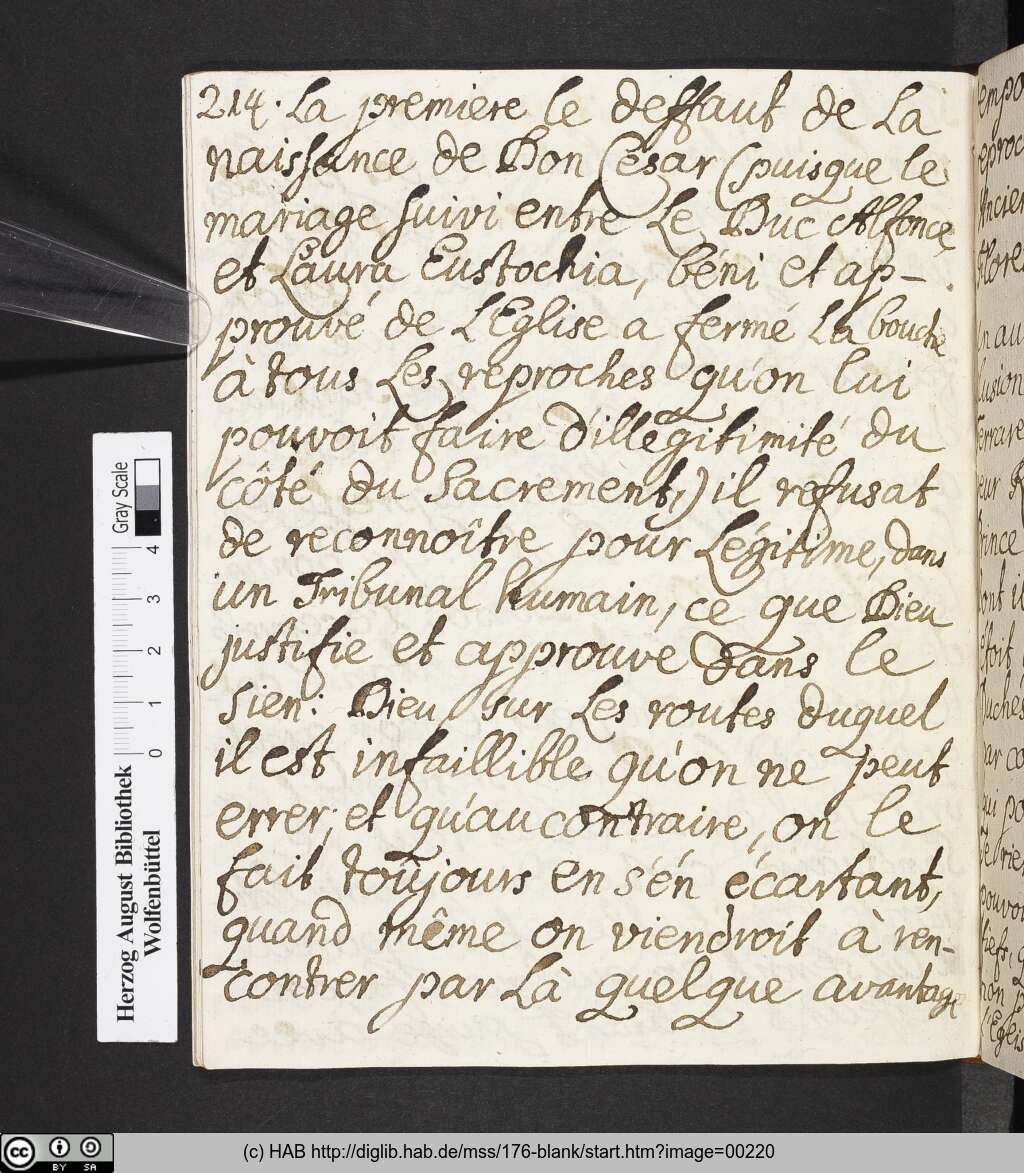 214. La premiere le deffaut de La
naissance de Don César (puisque le
mariage suivi entre Le Duc Alfonce
et Laura Eustochia, béni et ap-
prouvé de L'Eglise a fermé La bouche
à tous Les reproches qu'on lui
pouvoit faire d'illégitimité du
côté du Sacrement,) il refusat
de reconnoître pour Légitime, dans
un Tribunal humain, ce que Dieu
justifie et approuve dans le
sien: Dieu sur Les routes duquel
il est infaillible qu'on ne peut
errer; et qu'au contraire, on le
fait toûjours en s'én écartant,
quand même on viendroit à ren-
contrer par Là quelque avantage
empo
reproc
Ancien
Gray Scale
4
3
2
1
0
Herzog August Bibliothek
Wolfenbüttel
(c) HAB http://diglib.hab.de/mss/176-blank/start.htm?image=00220
cc BY SA